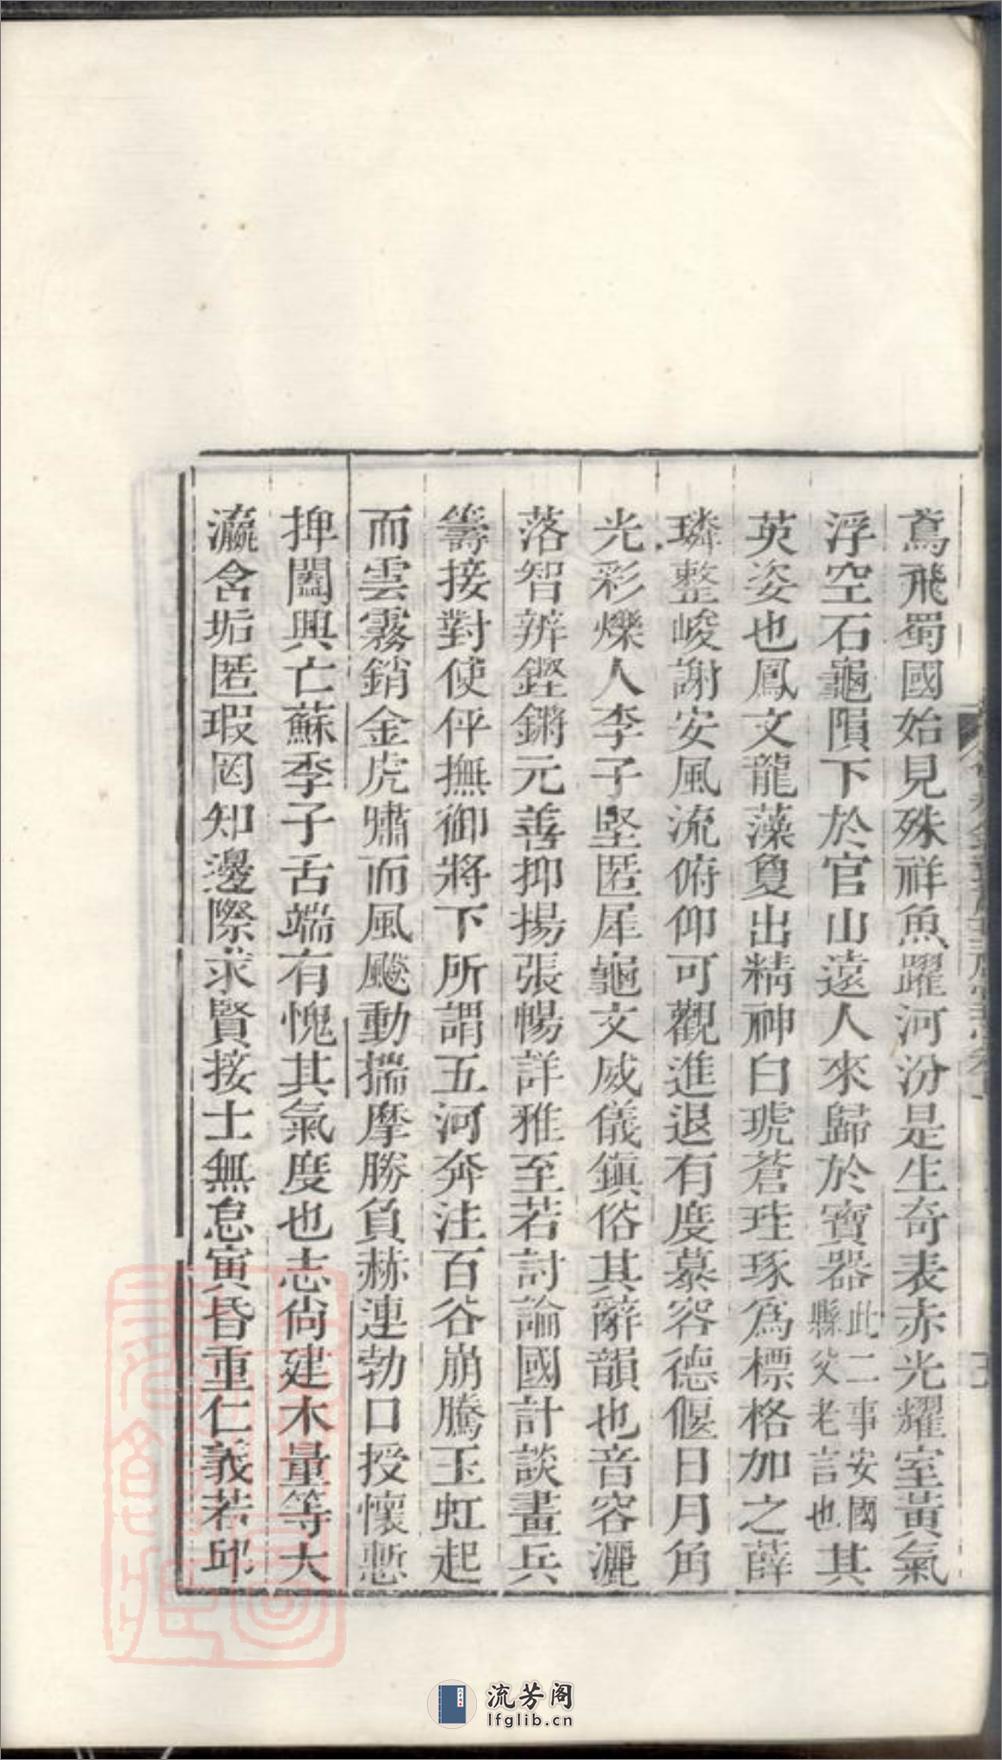 鳶飛蜀國始見殊祥魚躍河汾是生奇表赤光耀室黃氣
浮空石龜隕下於官山遠人來歸於寶器此二事安國縣父老言也其
英姿也鳳文龍藻夐出精神白琥蒼珪琢為標格加之薛
璘整峻謝安風流俯仰可觀進退有度慕容德偃日月角
光彩爍人李子堅匿犀龜文威儀鎮俗其辭韻也音容灑
落智辨鏗鏘元善抑揚張暢詳雅至若討論國計談畫兵
籌接對使伻撫御將下所謂五河奔注百谷崩騰玉虹起
而雲霧銷金虎嘯而風飈動揣摩勝負赫連勃口授懷慙
捭闔興亡蘇季子舌端有愧其氣度也志尚建木量等大
瀛含垢匿瑕罔知邊際求賢接士無怠寅昏重仁義若邱
流芳阁
lfglib.cn